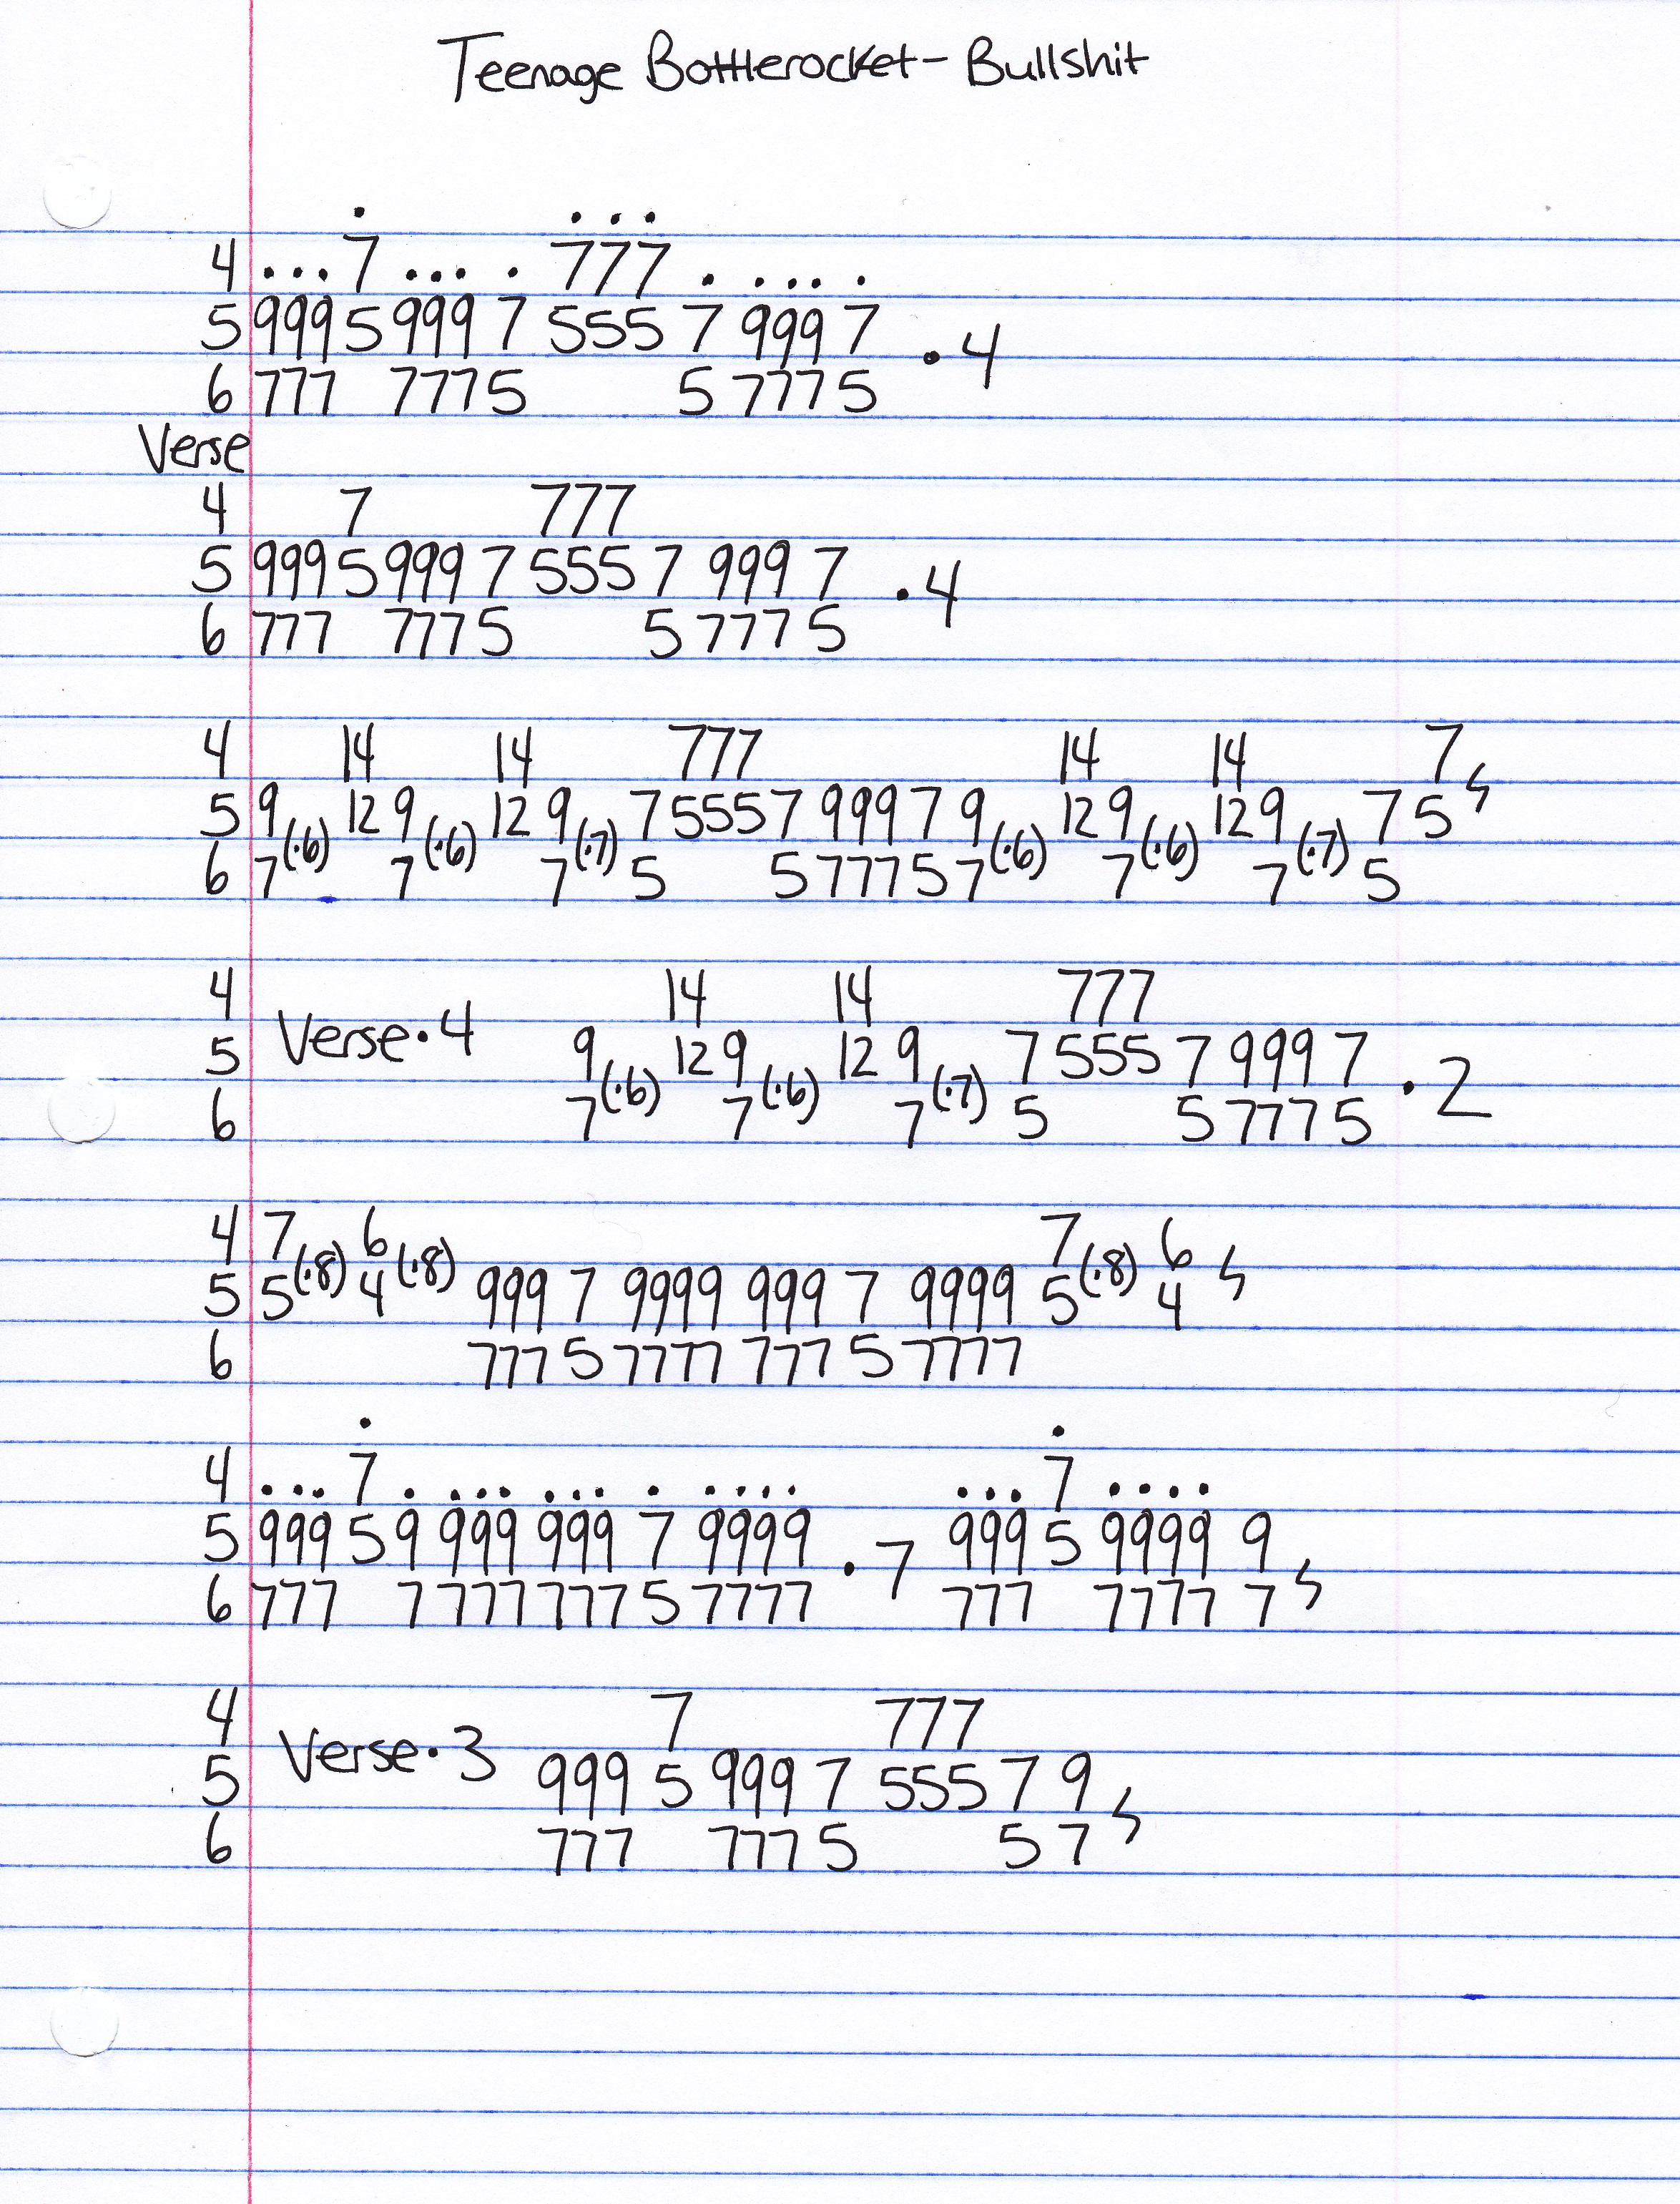 Teenage Bottlerocket - Bullshit
. . . .
4 ... 7 ... . 777 . .... .
5 999 5 999 7 555 7 999 7 . 4
6 777 7775 5 7775
Verse
4 7 777
5 999 5 999 7 555 7 999 7 . 4
6 777 7775 5 7775
4 14 14 777 14 14 7
5 9 (·6) 12 9 (·6) 12 9 (·7) 7 555 7 999 7 9 (·6) 12 9 (·6) 12 9 (·7) 7 5
6 7 7 7 5 5 777 5 7 7 7 5
4 14 14 777
5 Verse · 4 9 (·6) 12 9 (·6) 12 9 (·7) 7 555 7 999 7 . 2
6 7 7 7 5 5 777 5
4 7 (·8) 6 (·8) 7 (·8) 6
5 5 4 999 7 9999 999 7 9999 5 4
6 777 5 7777 777 5 7777
. .
4 ... 7 . ... ... . .... ... 7 ....
5 999 5 9 999 999 7 9999 . 7 999 5 9999 9
6 777 7 777 777 5 7777 777 7777 7
4 7 777
5 Verse · 3 999 5 999 7 555 7 9
6 777 777 5 5 7